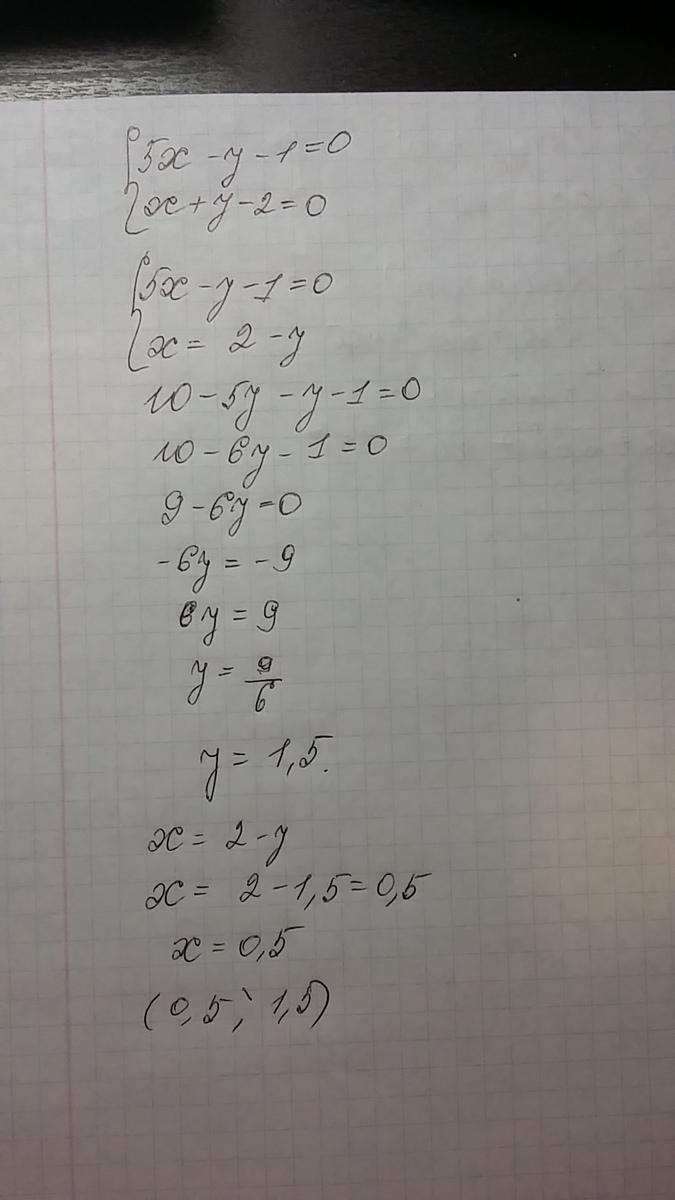 {5x - y - 1 = 0
{x + y - 2 = 0
{5x - y - 1 = 0
{x = 2 - y
10 - 5y - y - 1 = 0
10 - 6y - 1 = 0
9 - 6y = 0
-6y = -9
6y = 9
y = 9/6
y = 1,5.
x = 2 - y
x = 2 - 1,5 = 0,5
x = 0,5
(0,5; 1,5)